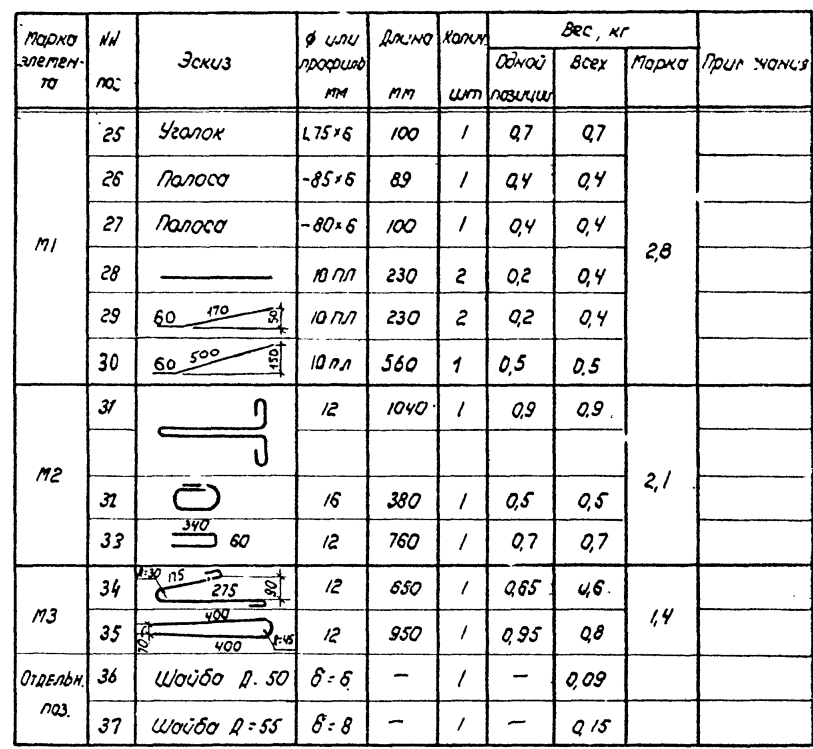 Марка элемента NN поз Эскиз ϕ или профиль мм Длина мм Колич шт Вес, кг
Одной позиции Всех Марка
М1 25 Уголок L75×6 100 1 0,7 0,7 2,8
26 Полоса -85×6 89 1 0,4 0,4
27 Полоса -80×6 100 1 0,4 0,4
28 10 пл 230 2 0,2 0,4
29 60 170 50 10 пл 230 2 0,2 0,4
30 60 500 150 10 пл 560 1 0,5 0,5
М2 31 12 1040 1 0,9 0,9 2,1
32 16 380 1 0,5 0,5
33 340 60 12 760 1 0,7 0,7
М3 34 R=30 175 275 90 12 650 1 0,65 0,6 1,4
35 400 400 70 R=45 12 950 1 0,95 0,8
Отдельн. поз. 36 Шайба Д. 50 δ=6 — 1 — 0,09
37 Шайба Д=55 δ=8 — 1 — 0,15